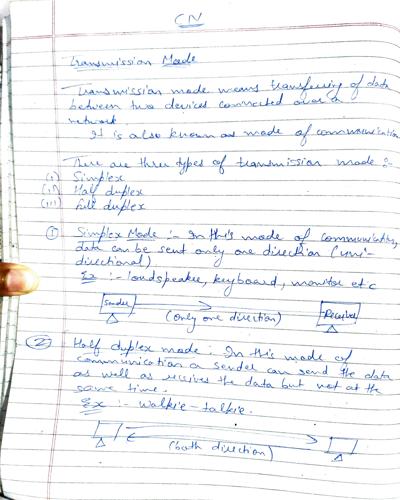 CN
Transmission Mode
Transmission mode means transfering of data
between two devices connected over a
network
It is also known as mode of communication
There are three types of transmission mode :-
(i) Simplex
(ii) Half duplex
(iii) Full duplex
① Simplex Mode :- In this mode of communication,
data can be sent only one direction (uni-
directional)
Ex :- loudspeaker, keyboard, monitor etc
Sender Receiver
(only one direction)
② Half duplex mode : In this mode of
communication a sender can send the data
as well as receives the data but not at the
same time.
Ex :- walkie-talkie.
(both direction)